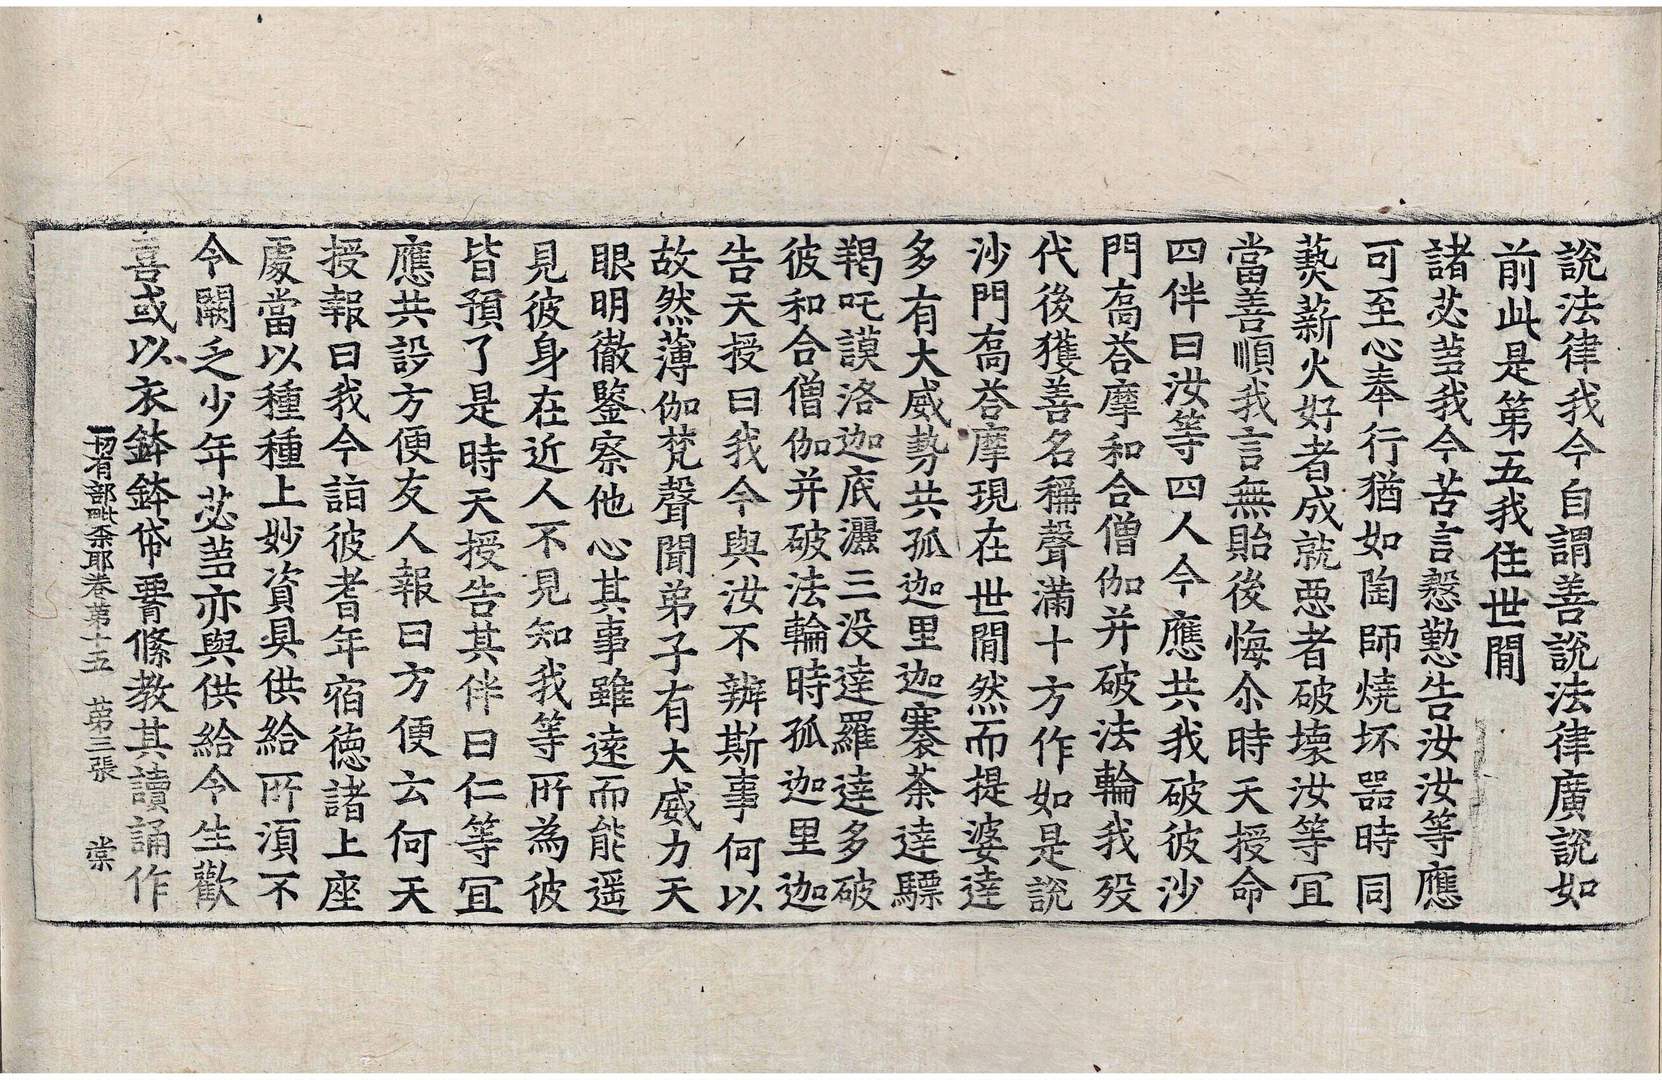 說法律我今自謂善說法律廣說如
前此是第五我住世閒
諸苾蒭我今苦言慇懃告汝汝等應
可至心奉行猶如陶師燒坏器時同
爇薪火好者成就惡者破壞汝等宜
當善順我言無貽後悔尒時天授命
四伴曰汝等四人今應共我破彼沙
門喬荅摩和合僧伽并破法輪我歿
代後獲善名稱聲滿十方作如是說
沙門喬荅摩現在世閒然而提婆達
多有大威勢共孤迦里迦褰荼達驃
羯吒謨洛迦底灑三没達羅達多破
彼和合僧伽并破法輪時孤迦里迦
告天授曰我今與汝不辨斯事何以
故然薄伽梵聲聞弟子有大威力天
眼明徹鑒察他心其事雖遠而能遥
見彼身在近人不見知我等所為彼
皆預了是時天授告其伴曰仁等宜
應共設方便友人報曰方便云何天
授報曰我今詣彼耆年宿德諸上座
處當以種種上妙資具供給所湏不
令闕乏少年苾蒭亦與供給令生歡
喜或以衣鉢鉢帒䙅絛教其讀誦作
一切有部毗柰耶卷第十五　第三張　棠